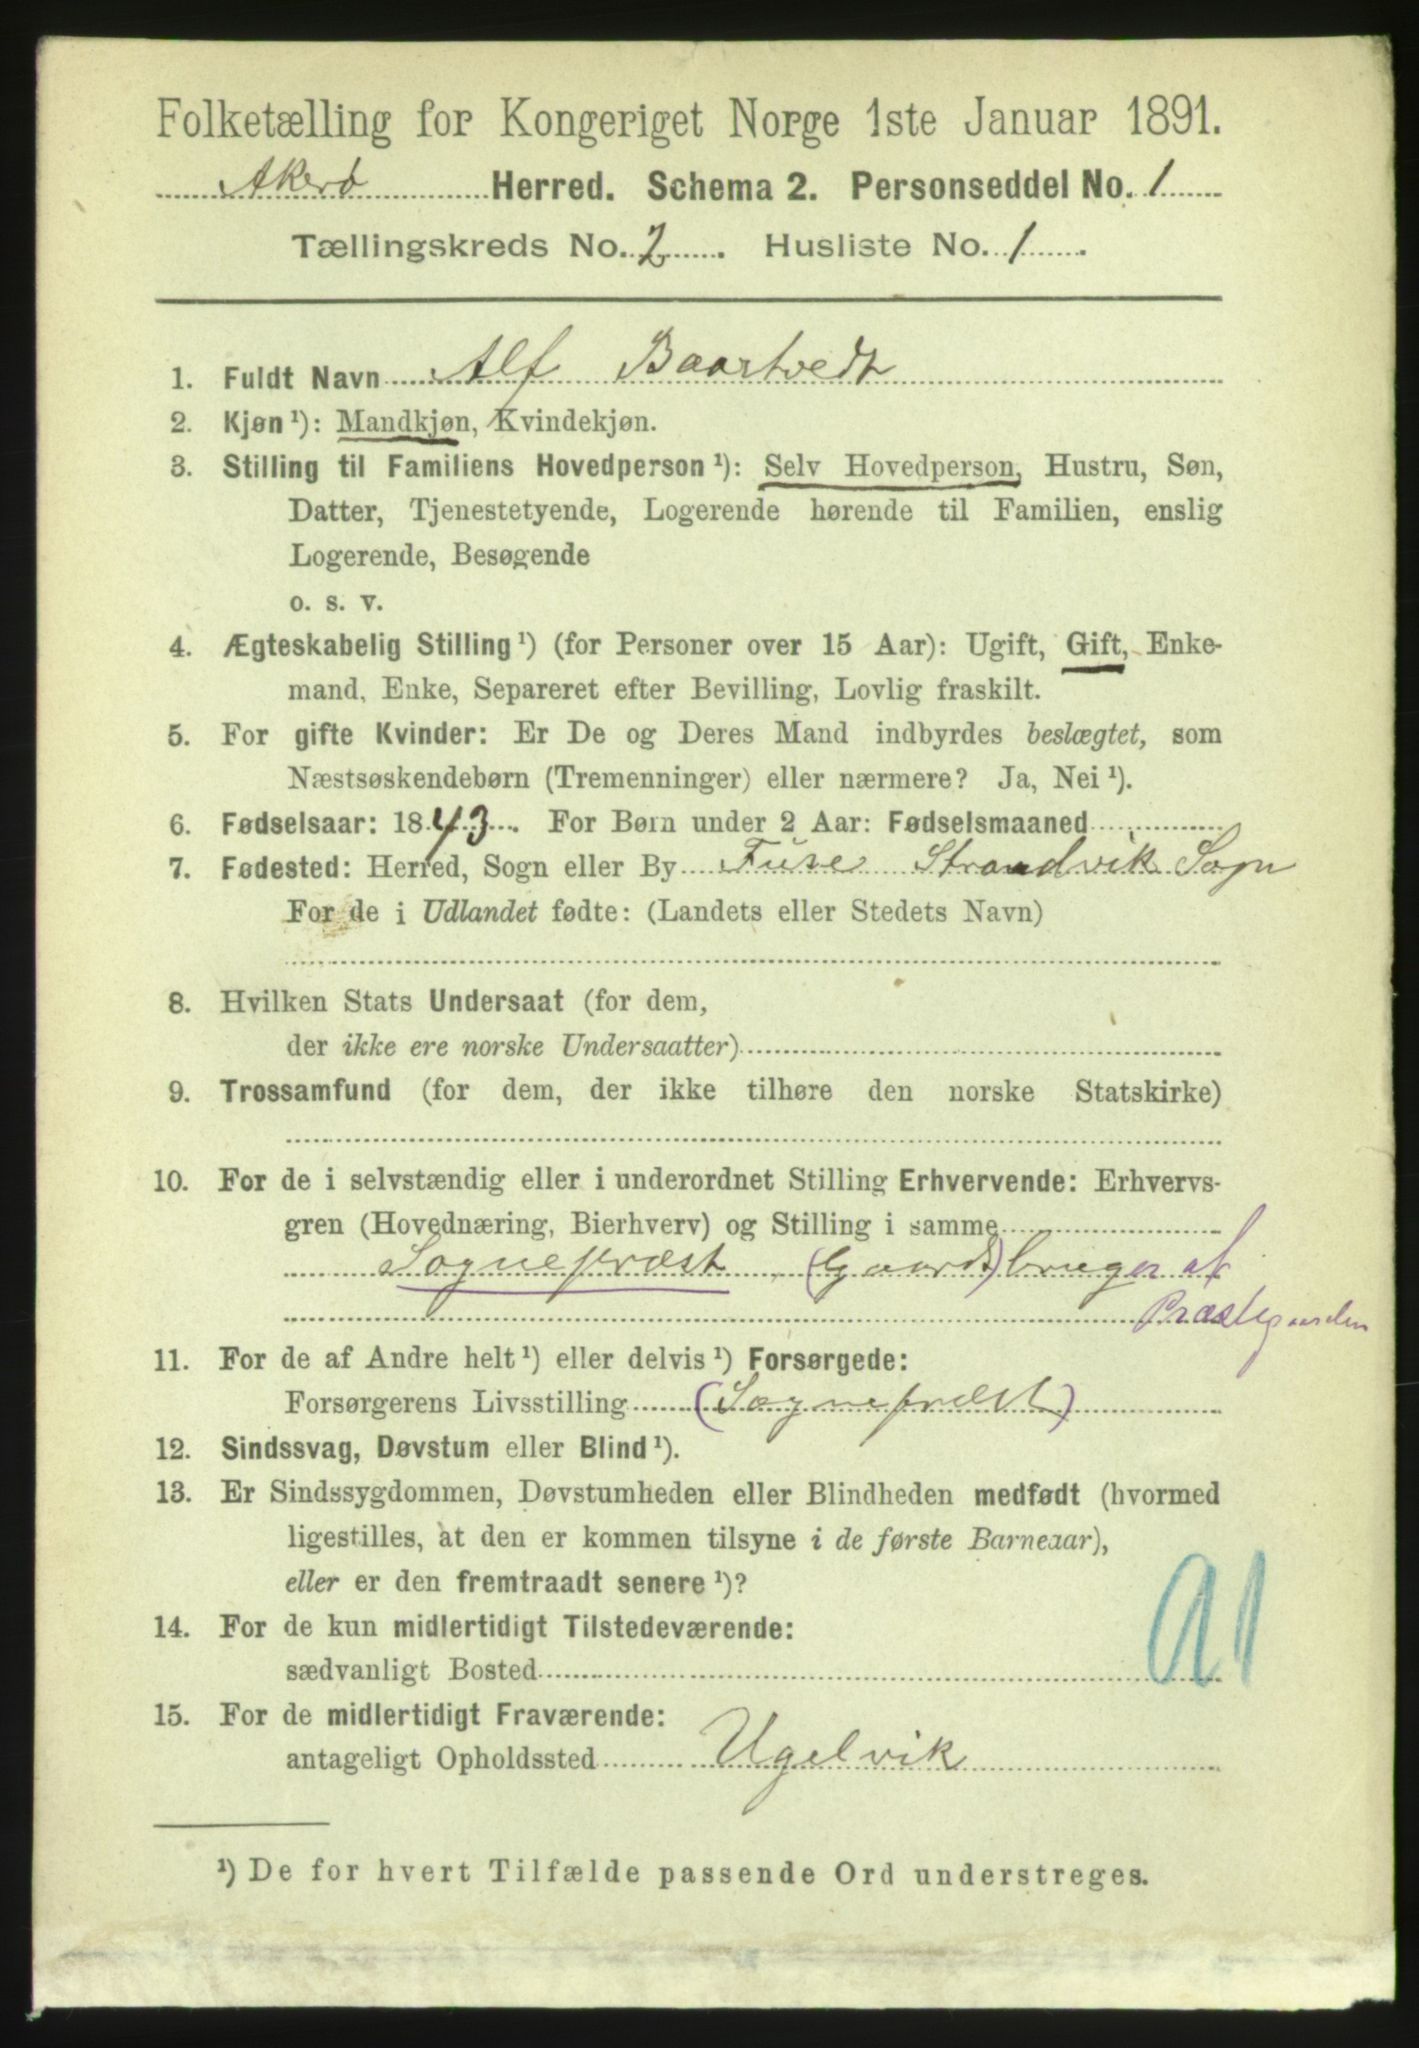 Folketælling for Kongeriget Norge 1ste Januar 1891.
Akerø Herred. Schema 2. Personseddel No. 1
Tællingskreds No. 2. Husliste No. 1.
1. Fuldt Navn Alf Baartvedt
2. Kjøn ¹): Mandkjøn, Kvindekjøn.
3. Stilling til Familiens Hovedperson ¹): Selv Hovedperson, Hustru, Søn,
Datter, Tjenestetyende, Logerende hørende til Familien, enslig
Logerende, Besøgende
o. s. v.
4. Ægteskabelig Stilling ¹) (for Personer over 15 Aar): Ugift, Gift, Enke-
mand, Enke, Separeret efter Bevilling, Lovlig fraskilt.
5. For gifte Kvinder: Er De og Deres Mand indbyrdes beslægtet, som
Næstsøskendebørn (Tremenninger) eller nærmere? Ja, Nei ¹).
6. Fødselsaar: 1843. For Børn under 2 Aar: Fødselsmaaned
7. Fødested: Herred, Sogn eller By Fuse Strandvik Sogn
For de i Udlandet fødte: (Landets eller Stedets Navn)
8. Hvilken Stats Undersaat (for dem,
der ikke ere norske Undersaatter)
9. Trossamfund (for dem, der ikke tilhøre den norske Statskirke)
10. For de i selvstændig eller i underordnet Stilling Erhvervende: Erhvervs-
gren (Hovednæring, Bierhverv) og Stilling i samme
Sognepræst (Gaards)bruger af
Præstegaarden
11. For de af Andre helt ¹) eller delvis ¹) Forsørgede:
Forsørgerens Livsstilling (Sognepræst)
12. Sindssvag, Døvstum eller Blind ¹).
13. Er Sindssygdommen, Døvstumheden eller Blindheden medfødt (hvormed
ligestilles, at den er kommen tilsyne i de første Barneaar),
eller er den fremtraadt senere ¹)?
14. For de kun midlertidigt Tilstedeværende:
sædvanligt Bosted
15. For de midlertidigt Fraværende:
antageligt Opholdssted Ugelvik
¹) De for hvert Tilfælde passende Ord understreges.